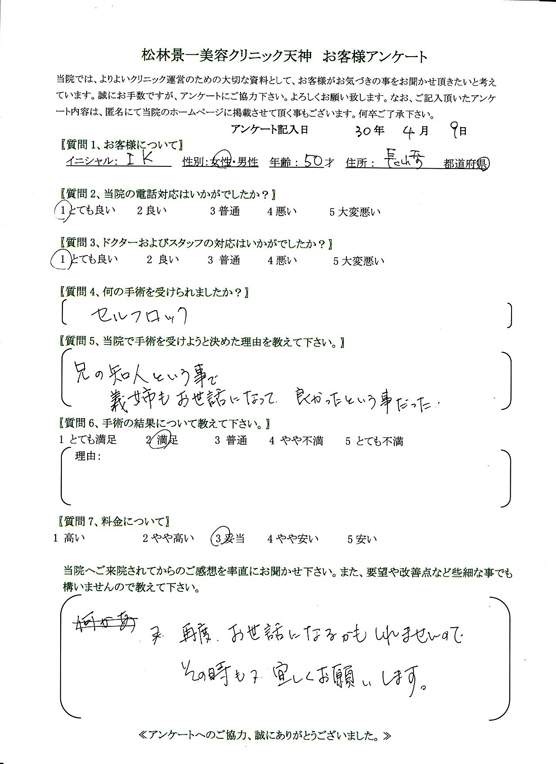 松林景一美容クリニック天神 お客様アンケート
当院では、よりよいクリニック運営のための大切な資料として、お客様がお気づきの事をお聞かせ頂きたいと考え
ています。誠にお手数ですが、アンケートにご協力下さい。よろしくお願い致します。なお、ご記入頂いたアンケ
ート内容は、匿名にて当院のホームページに掲載させて頂く事もございます。何卒ご了承下さい。
アンケート記入日 30年 4月 9日
〖質問1、お客様について〗
イニシャル: I K 性別:女性・男性 年齢:50才 住所: 長崎 都道府県
〖質問2、当院の電話対応はいかがでしたか?〗
1とても良い 2良い 3普通 4悪い 5大変悪い
〖質問3、ドクターおよびスタッフの対応はいかがでしたか?〗
1とても良い 2 良い 3 普通 4悪い 5大変悪い
〖質問4、何の手術を受けられましたか?〗
セルフロック
〖質問5、当院で手術を受けようと決めた理由を教えて下さい。〗
兄の知人という事で
義姉もお世話になって 良かったという事だった.
〖質問6、手術の結果について教えて下さい。〗
1 とても満足 2 満足 3 普通 4 やや不満 5 とても不満
理由:
〖質問7、料金について〗
1 高い 2やや高い 3妥当 4やや安い 5安い
当院へご来院されてからのご感想を率直にお聞かせ下さい。また、要望や改善点など些細な事でも
構いませんので教えて下さい。
又 再度、お世話になるかもしれませんので
その時も 宜しくお願いします。
≪アンケートへのご協力、誠にありがとうございました。≫